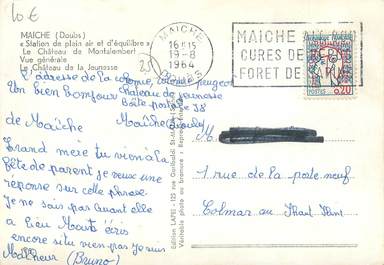 10€
MAICHE (Doubs)
« Station de plein air et d'équilibre »
Le Château de Montalembert
Vue générale
Le Château de la Jaunasse
MAICHE
16H15
19-8
1964
DOUBS
MAICHE ALT. 800
CURES DE REPOS
FORET DE SAPINS
POSTES
0,20
L'adresse de la colonie peugeot
Château de jeunesse
Boîte postale 38
Maîche doubs
Un bien bonjour
de Maîche
M
Grand meie tu vien a la
fête de parent je veux une
reponse sur cette phrase
Je ne sais pas quant elle
a lieu Marta écris
encore situ vien pas je suis
Malheur (Bruno)
1 rue de la porte neuf
Colmar au Haut Rhin
Edition LAPIE - 123 rue Garibaldi St-MAUR
Véritable photo au bromure -